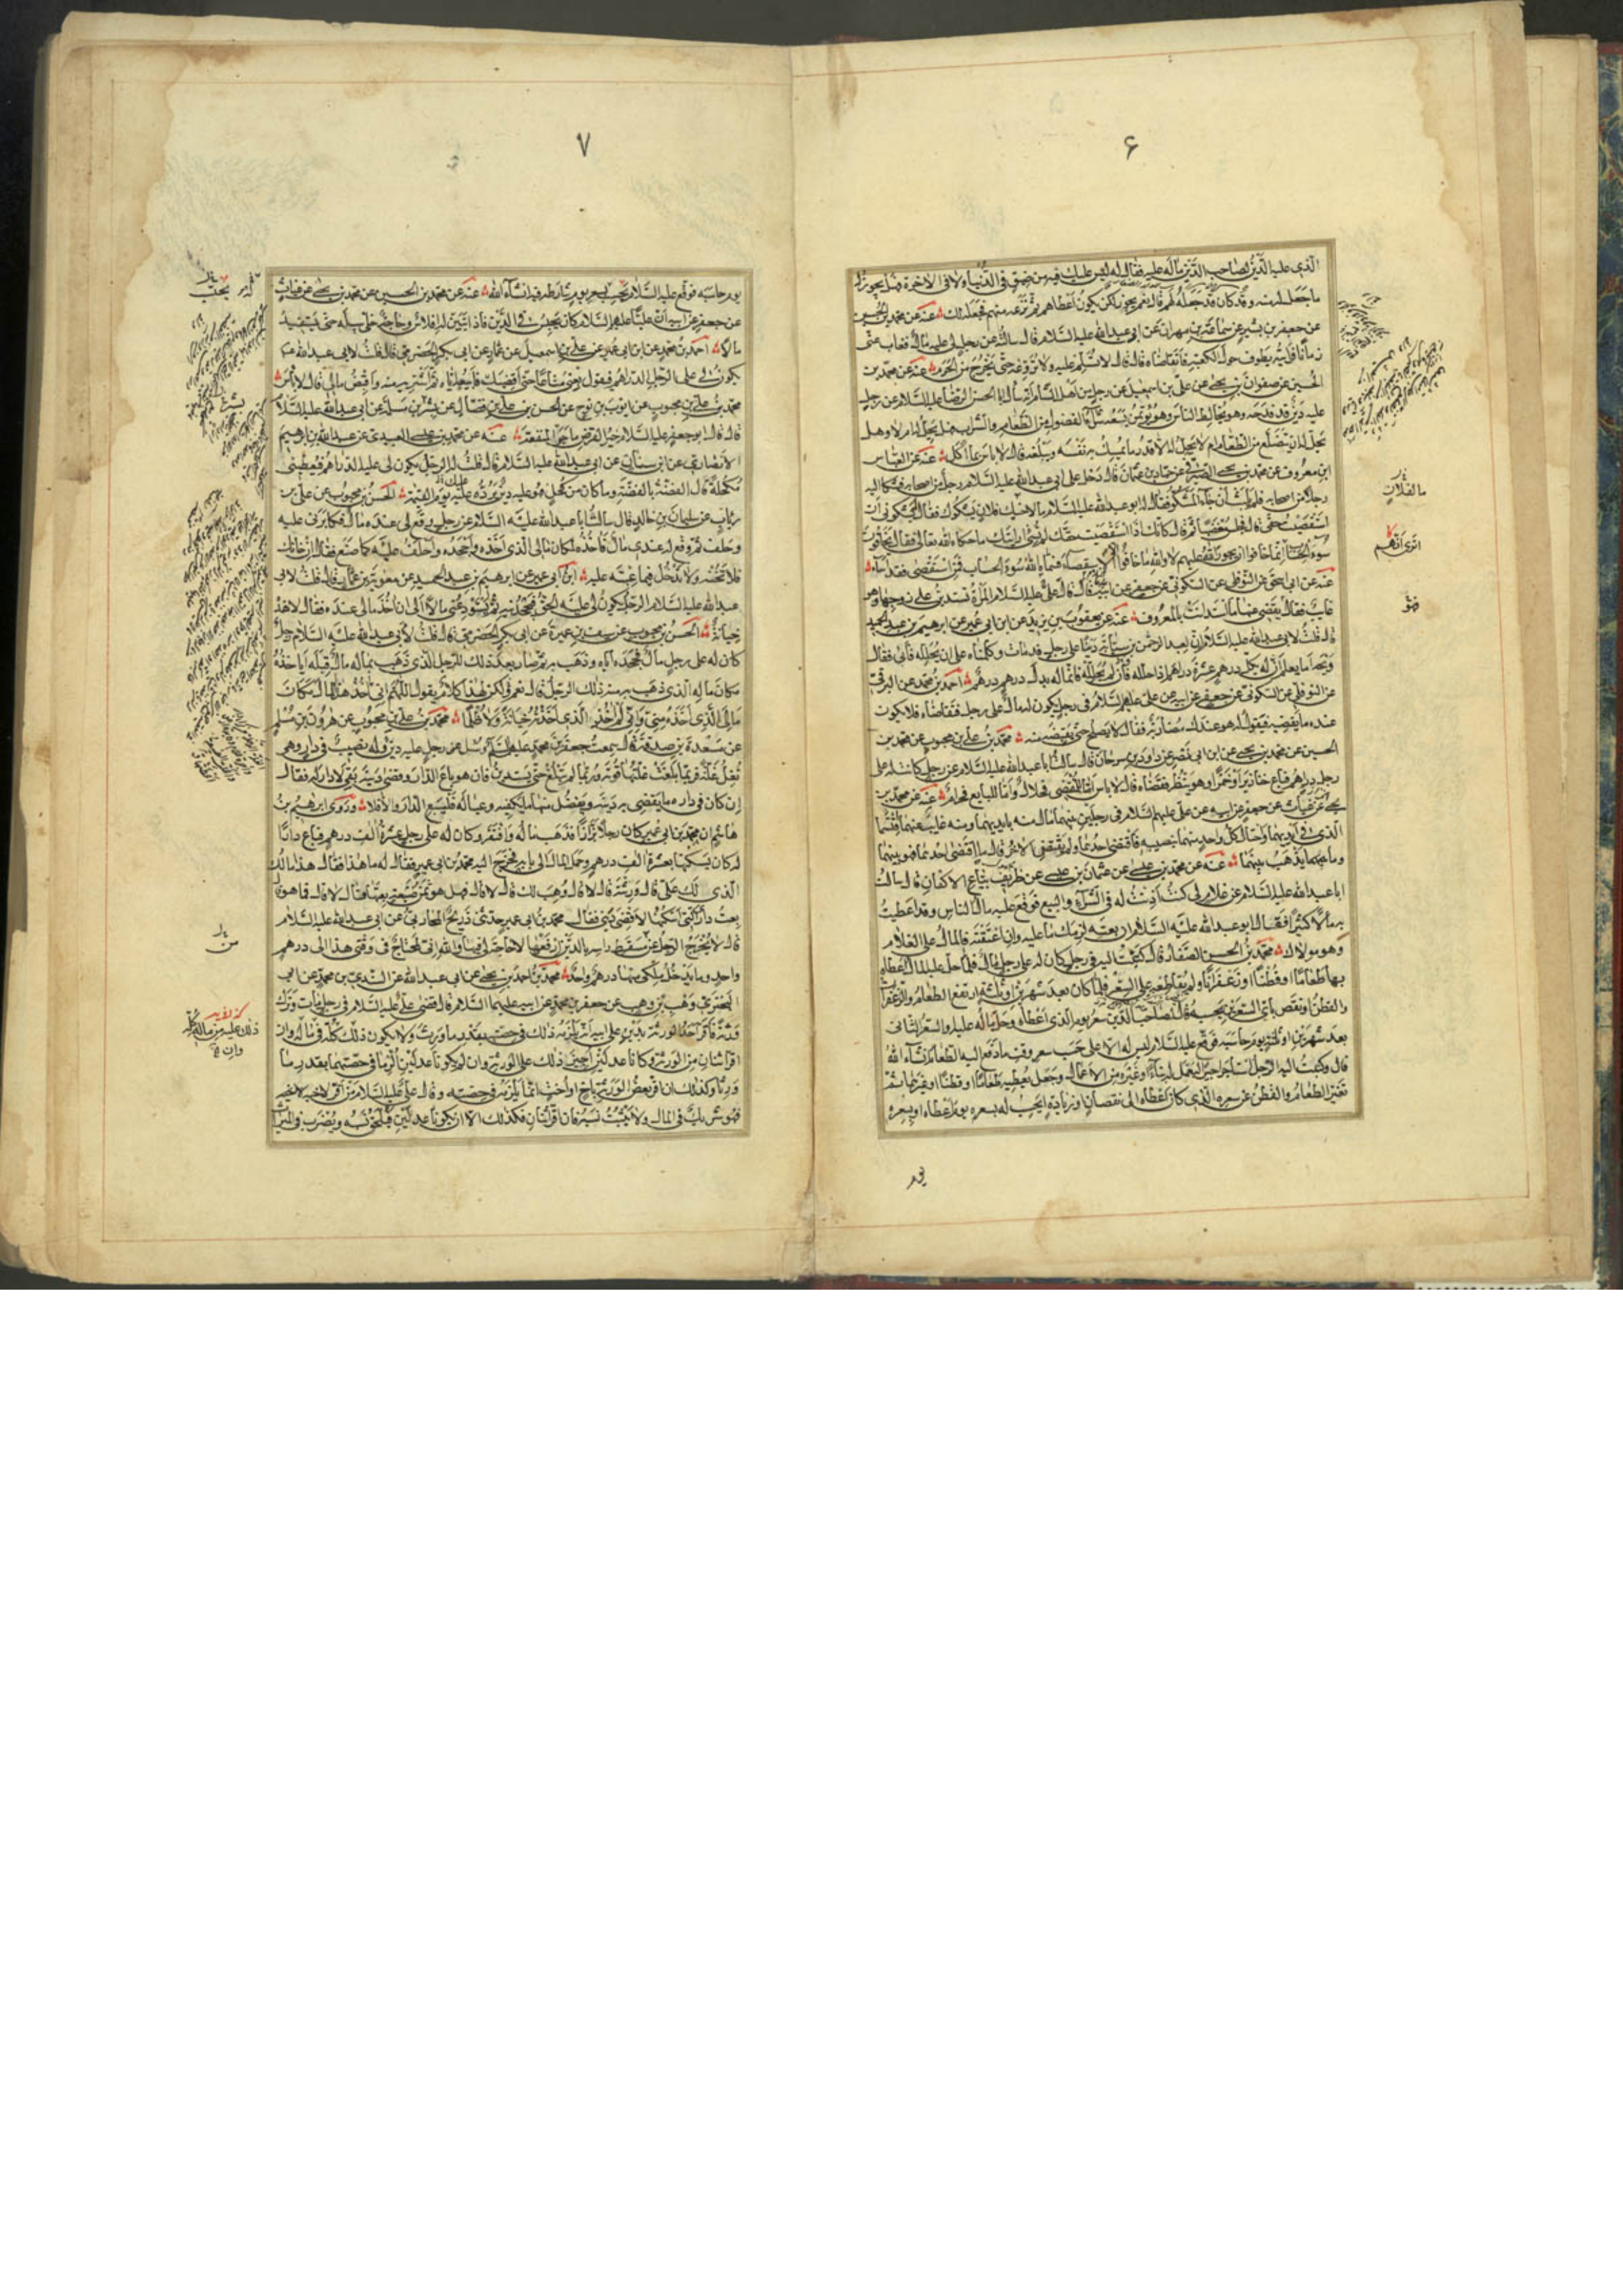 ۶
الذى عليه الدين لصاحب الدين ماله عليه فقال له ليس عليك فيه من ضيق فى الدنيا ولا فى الاخرة فهل يجوز له
ما جعل له منه وقد كان قد جعله لهم قال نعم يجوز لكن يكون اعطاهم ثم نزعه منهم فجعله لك عنه عن محمد بن الحسين
عن جعفر بن بشير عن سماعة بن مهران عن ابى عبد الله عليه السلام قال سالته عن رجل لى عليه مال فغاب عنى
زمانا فرايته يطوف حول الكعبة فاتقاضاه قال قال لا تسلم عليه ولا تروعه حتى يخرج من الحرم عنه عن محمد بن
الحسين عن صفوان بن يحيى عن على بن اسمعيل عن رجل من اهل الشام انه سال ابا الحسن الرضا عليه السلام عن رجل
عليه دين قد فدحه وهو يخالط الناس وهو يؤتمن يسعه شراء الفضول من الطعام والشراب فهل يحل له ام لا وهل
يحل له ان يتضلع من الطعام ام لا يحل له الا قدر ما يمسك به نفسه ويبلغه قال لا باس بما اكل عنه عن العباس
ابن معروف عن محمد بن يحيى الصيرفى عن حماد بن عثمان قال دخل على ابى عبد الله عليه السلام رجل من اصحابه فشكا اليه
رجلا من اصحابه فلم يلبث ان جاء المشكو فقال له ابو عبد الله عليه السلام ما لاخيك فلان يشكوك فقال يشكونى ان
استقضيت حقى قال فجلس مغضبا ثم قال كانك اذا استقضيت حقك لم تسئ ارايتك ما حكاه الله تعالى فقال يخافون
سوء الحساب انما خافوا ان يجور الله عليهم لا والله ما خافوا الا الاستقصاء فسماه الله سوء الحساب فمن استقضى فقد اساء
عنه عن ابى اسحق عن النوفلى عن السكونى عن جعفر عن ابيه قال قال على عليه السلام المراة تستدين على زوجها وهو
غايب فقال يقضى عنها ما استدانت بالمعروف عنه عن يعقوب بن يزيد عن ابن ابى عمير عن ابرهيم بن عبد الحميد
قال قلت لابى عبد الله عليه السلام ان لعبد الرحمن بن سيابة دينا على رجل قد مات وكلمناه على ان يحلله فابى فقال
ويحه اما يعلم ان له بكل درهم عشرة دراهم اذا حلله فان لم يحلله فانما له بدل درهم درهم احمد بن محمد عن البرقى
عن النوفلى عن السكونى عن جعفر عن ابيه عن على عليهم السلام فى رجل يكون له مال على رجل فتقاضاه فلا يكون
عنده ما يقضيه فيقول له هو عندك مضاربة فقال لا يصلح حتى يقبضه منه محمد بن على بن محبوب عن محمد بن
الحسين عن محمد بن يحيى عن ابن ابى نصر عن داود بن سرحان قال سالت ابا عبد الله عليه السلام عن رجل كانت له على
رجل دراهم فباع خنازير او خمرا وهو ينظر فقضاه قال لا باس اما للمقضى فحلال واما للبايع فحرام عنه عن محمد بن
يحيى عن غياث عن جعفر عن ابيه عن على عليهم السلام فى رجلين بينهما مال منه بايديهما ومنه غايب عنهما فاقتسما
الذى فى ايديهما واحتال كل واحد منهما بنصيبه فاقتضى احدهما ولم يقتض الاخر قال ما اقتضى احدهما فهو بينهما
وما يذهب بينهما عنه عن محمد بن عيسى عن عثمان بن عيسى عن ظريف بياع الاكفان قال سالت
ابا عبد الله عليه السلام عن غلام لى كنت اذنت له فى الشراء والبيع فوقع عليه مال للناس وقد اعطيت
به مالا كثيرا فقال ابو عبد الله عليه السلام ان بعته لزمك ما عليه وان اعتقته فالمال على الغلام
وهو مولاك محمد بن الحسن الصفار قال كتبت اليه فى رجل كان له على رجل مال فلما حل عليه المال اعطاه
بها طعاما او قطنا او زعفرانا ولم يقاطعه على السعر فلما كان بعد شهرين او ثلثة ارتفع الطعام والزعفران
والقطن او نقص باى السعرين يحسبه قال لصاحب الدين سعر يومه الذى اعطاه وحل ماله عليه او السعر الثانى
بعد شهرين او ثلثة يوم حاسبه فوقع عليه السلام ليس له الا على حسب سعر وقت ما دفع اليه الطعام ان شاء الله
قال وكتبت اليه الرجل استاجر اجيرا ليعمل له بناء او غيره من الاعمال وجعل يعطيه طعاما او قطنا او غيرهما ثم
تغير الطعام والقطن عن سعره الذى كان اعطاه الى نقصان او زيادة ايحسب له بسعره يوم اعطاه او بسعره
يوم
۷
يوم حاسبه فوقع عليه السلام يحتسب له سعر يوم شارطه فيه ان شاء الله عنه عن محمد بن الحسين عن محمد بن يحيى عن غياث
عن جعفر عن ابيه ان عليا عليهم السلام كان يحبس فى الدين فاذا تبين له افلاس وحاجة خلى سبيله حتى يستفيد
مالا احمد بن محمد عن ابن ابى عمير عن على بن اسمعيل عن عمار عن ابى بكر الحضرمى قال قلت لابى عبد الله ع
يكون لى على الرجل الدراهم فيقول بعنى متاعا حتى اقضيك فابيعه اياه ثم اشتريه منه واقبض مالى قال لا باس
محمد بن على بن محبوب عن ايوب بن نوح عن الحسن بن على بن فضال عن بشر بن مسلمة عن ابى عبد الله عليه السلام
قال قال ابو جعفر عليه السلام خير القرض ما جر المنفعة عنه عن محمد بن عيسى العبيدى عن عبد الله بن ابرهيم
الانصارى عن ابن سنان عن ابى عبد الله عليه السلام قال قلت له الرجل يكون لى عليه الدراهم فيعطينى
مكحلة قال الفضة بالفضة وما كان من كحل فهو عليه دين يرده عليك يوم القيمة الحسن بن محبوب عن على بن
رئاب عن سليمان بن خالد قال سالت ابا عبد الله عليه السلام عن رجل وقع لى عنده مال فكابرنى عليه
وحلف ثم وقع له عندى مال فاخذه لمكان مالى الذى اخذه واجحده واحلف عليه كما صنع فقال ان خانك
فلا تخنه ولا تدخل فيما عبته عليه ابن ابى عمير عن ابرهيم بن عبد الحميد عن معوية بن عمار قال قلت لابى
عبد الله عليه السلام الرجل يكون لى عليه الحق فيجحدنيه ثم يستودعنى مالا الى ان اخذ مالى عنده فقال لا هذه
خيانة الحسن بن محبوب عن سيف بن عميرة عن ابى بكر الحضرمى قال قلت لابى عبد الله عليه السلام رجل
كان له على رجل مال فجحده اياه وذهب به ثم صار بعد ذلك للرجل الذى ذهب بماله مال قبله اياخذه
مكان ماله الذى ذهب به منه ذلك الرجل قال نعم ولكن لهذا كلام يقول اللهم انى اخذ هذا المال مكان
مالى الذى اخذه منى وانى لم اخذ الذى اخذته خيانة ولا ظلما محمد بن على بن محبوب عن هرون بن مسلم
عن مسعدة بن صدقة قال سمعت جعفر بن محمد عليهما السلام وسئل عن رجل عليه دين وله نصيب فى دار وهى
تغل غلة فربما بلغت غلتها قوته وربما لم تبلغ حتى يستدين فان هو باع الدار وقضى دينه بقى لا دار له فقال
ان كان فى داره ما يقضى به دينه ويفضل منها ما يكفيه وعياله فليبع الدار والا فلا وروى ابرهيم بن
هاشم ان محمد بن ابى عمير كان رجلا بزازا فذهب ماله وافتقر وكان له على رجل عشرة الف درهم فباع دارا
له كان يسكنها بعشرة الف درهم وحمل المال الى بابه فخرج اليه محمد بن ابى عمير فقال له ما هذا فقال هذا مالك
الذى لك على قال ورثته قال لا قال وهب لك قال لا قال فهل هو ثمن ضيعة بعتها قال لا قال فما هو قال
بعت دارى التى اسكنها لاقضى دينى فقال محمد بن ابى عمير حدثنى ذريح المحاربى عن ابى عبد الله عليه السلام
قال لا يخرج الرجل عن مسقط راسه بالدين ارفعها لا حاجة لى فيها والله انى لمحتاج فى وقتى هذا الى درهم
واحد وما يدخل ملكى منها درهم واحد محمد بن احمد بن يحيى عن ابى عبد الله عن السندى بن محمد عن ابى
البخترى وهب بن وهب عن جعفر بن محمد عن ابيه عليهما السلام قال قضى على عليه السلام فى رجل مات وترك
ورثة فاقر احد الورثة بدين على ابيه انه يلزمه ذلك فى حصته بقدر ما ورث ولا يكون ذلك كله فى ماله وان
اقر اثنان من الورثة وكانا عدلين اجيز ذلك على الورثة وان لم يكونا عدلين الزما فى حصتهما بقدر ما
ورثا وكذلك ان اقر بعض الورثة باخ او اخت انما يلزمه فى حصته وقال على عليه السلام من اقر لاخيه
فهو شريك فى المال ولا يثبت نسبه فان اقر اثنان فكذلك الا ان يكونا عدلين فيلحق نسبه ويضرب فى الميراث